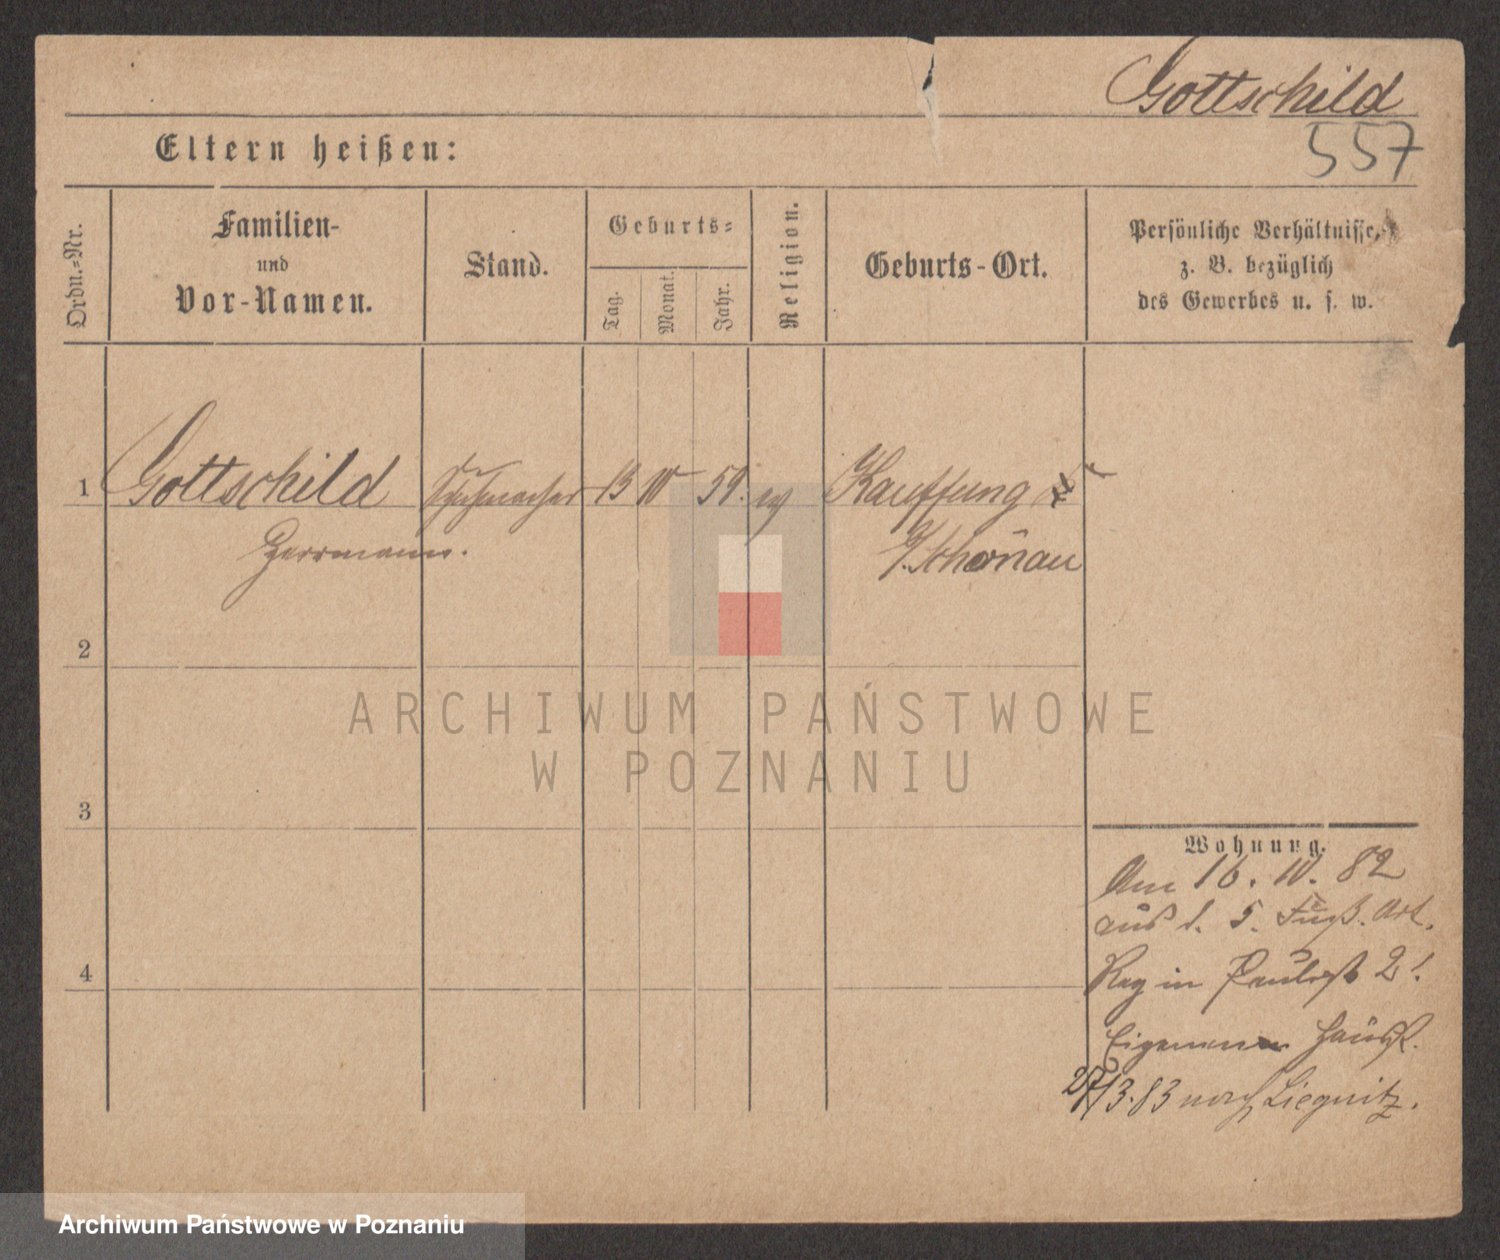 Gottschild
557
Eltern heißen:
Ordn.-Nr.
Familien-
und
Vor-Namen.
Stand.
Geburts-
Tag.
Monat.
Jahr.
Religion.
Geburts-Ort.
Persönliche Verhältnisse,
z. B. bezüglich
des Gewerbes u. s. w.
1 Gottschild Schuhmacher 13 59. ev Kauffung
Herrmann. Schönau
2
3
4
ARCHIWUM PAŃSTWOWE
W POZNANIU
Wohnung.
Am 16. 82
aus d. 5. Fuß. Art.
Reg in 2!
Eigenen
27/3.83 nach Liegnitz.
Archiwum Państwowe w Poznaniu